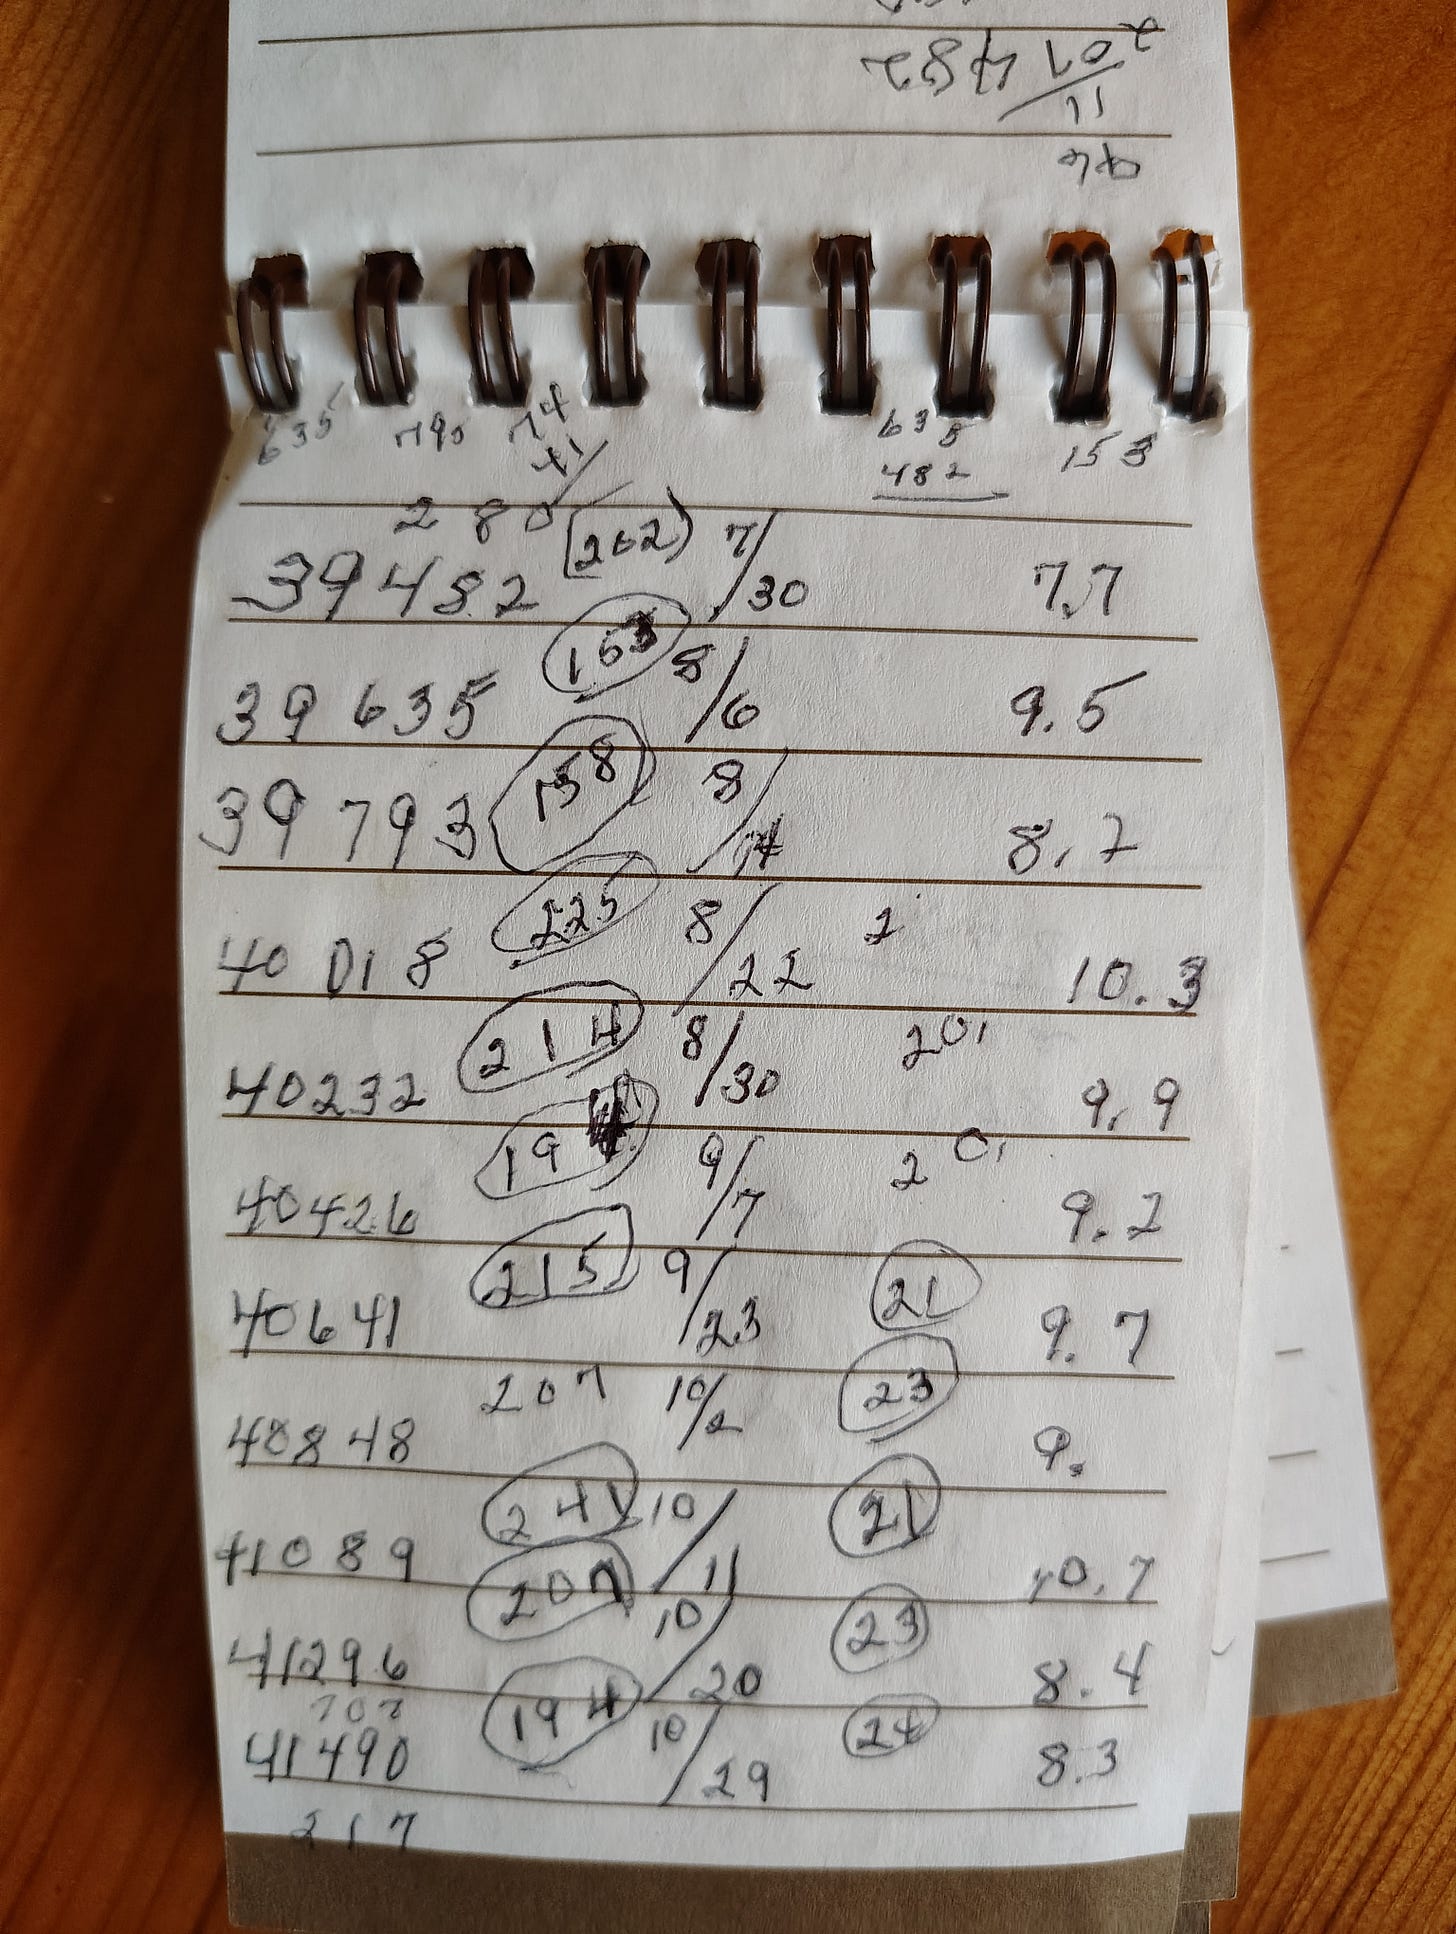 635 790 74 635 153
41/ 482
280
39482 (202) 7/30 7.7
39635 153 8/6 9.5
39793 158 8/14 8.2
40018 225 8/22 2 10.3
40232 214 8/30 201 9.9
40426 194 9/7 201 9.2
40641 215 9/23 21 9.7
40848 207 10/2 23 9.
41089 241 10/11 21 10.7
41296 207 10/20 23 8.4
41490 194 10/29 24 8.3
217